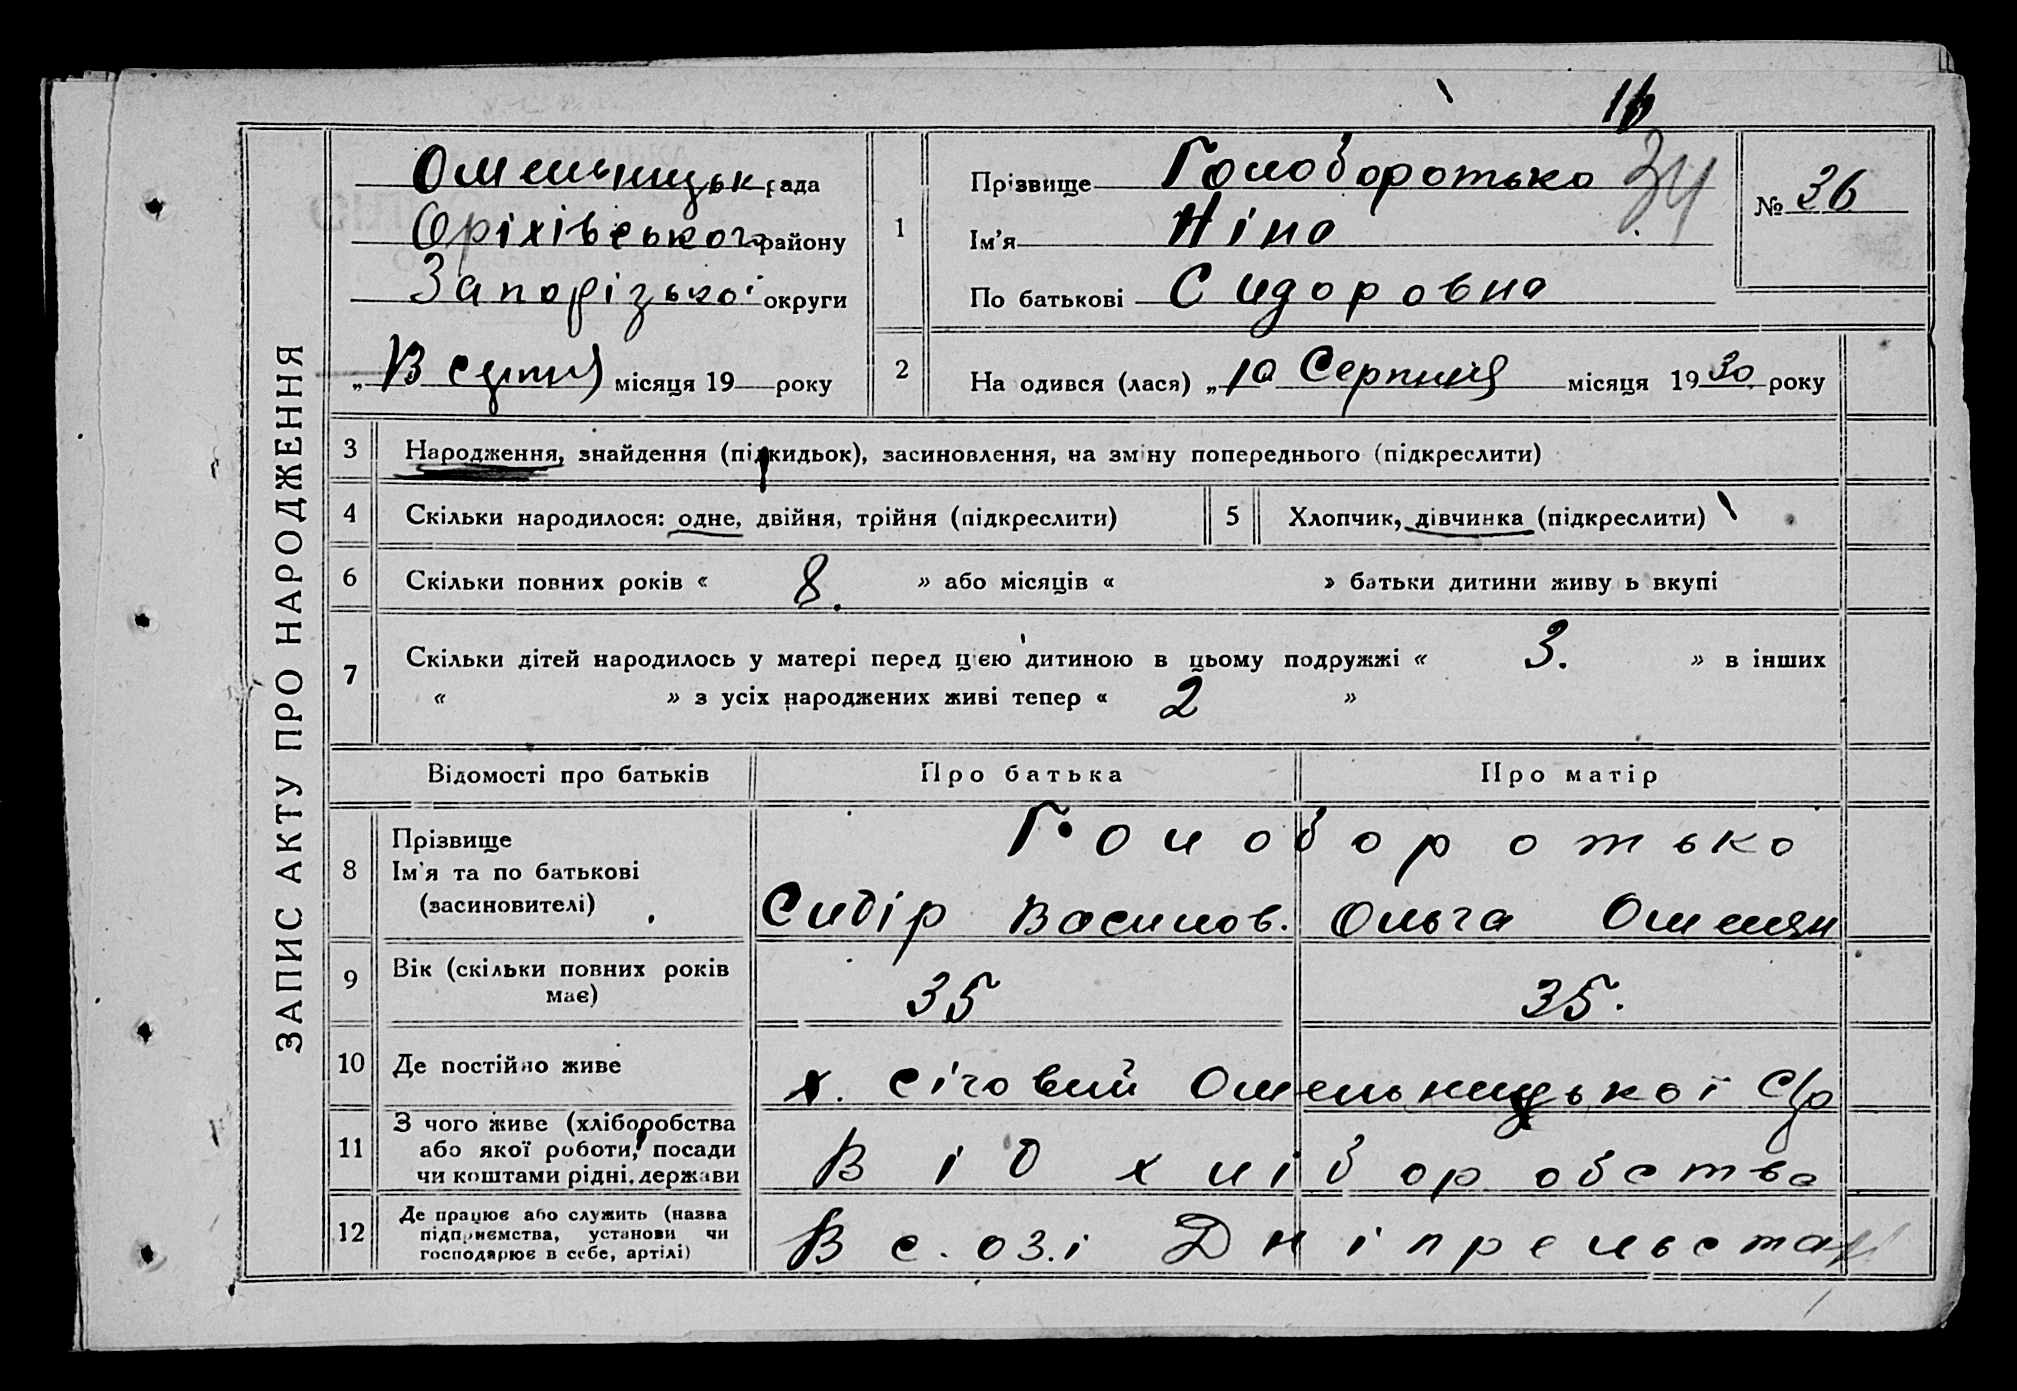 16
34
ЗАПИС АКТУ ПРО НАРОДЖЕННЯ
Омельницьк рада
Оріхівського району
Запорізької округи
„ місяця 19 року
1
Прізвище Голоборотько
Ім'я Ніна
По батькові Сидоровна
№ 36
2
На одився (лася) „10 Серпния місяця 1930 року
3 Народження, знайдення (підкидьок), засиновлення, на зміну попереднього (підкреслити)
4 Скільки народилося: одне, двійня, трійня (підкреслити) 5 Хлопчик, дівчинка (підкреслити)
6 Скільки повних років « 8. » або місяців « » батьки дитини живу ь вкупі
7 Скільки дітей народилось у матері перед цією дитиною в цьому подружжі « 3. » в інших
« » з усіх народжених живі тепер « 2 »
Відомості про батьків Про батька Про матір
8 Прізвище
Ім'я та по батькові
(засиновителі)
Голоборотько
Сидір Василов. Ольга Омелян
9 Вік (скільки повних років
має)
35 35.
10 Де постійно живе х. Січовий Омельницької С/р
11 З чого живе (хліборобства
або якої роботи, посади
чи коштами рідні, держави
Від хліборобства
12 Де працює або служить (назва
підприємства, установи чи
господарює в себе, артілі)
В с.оз.і Дніпрельстан